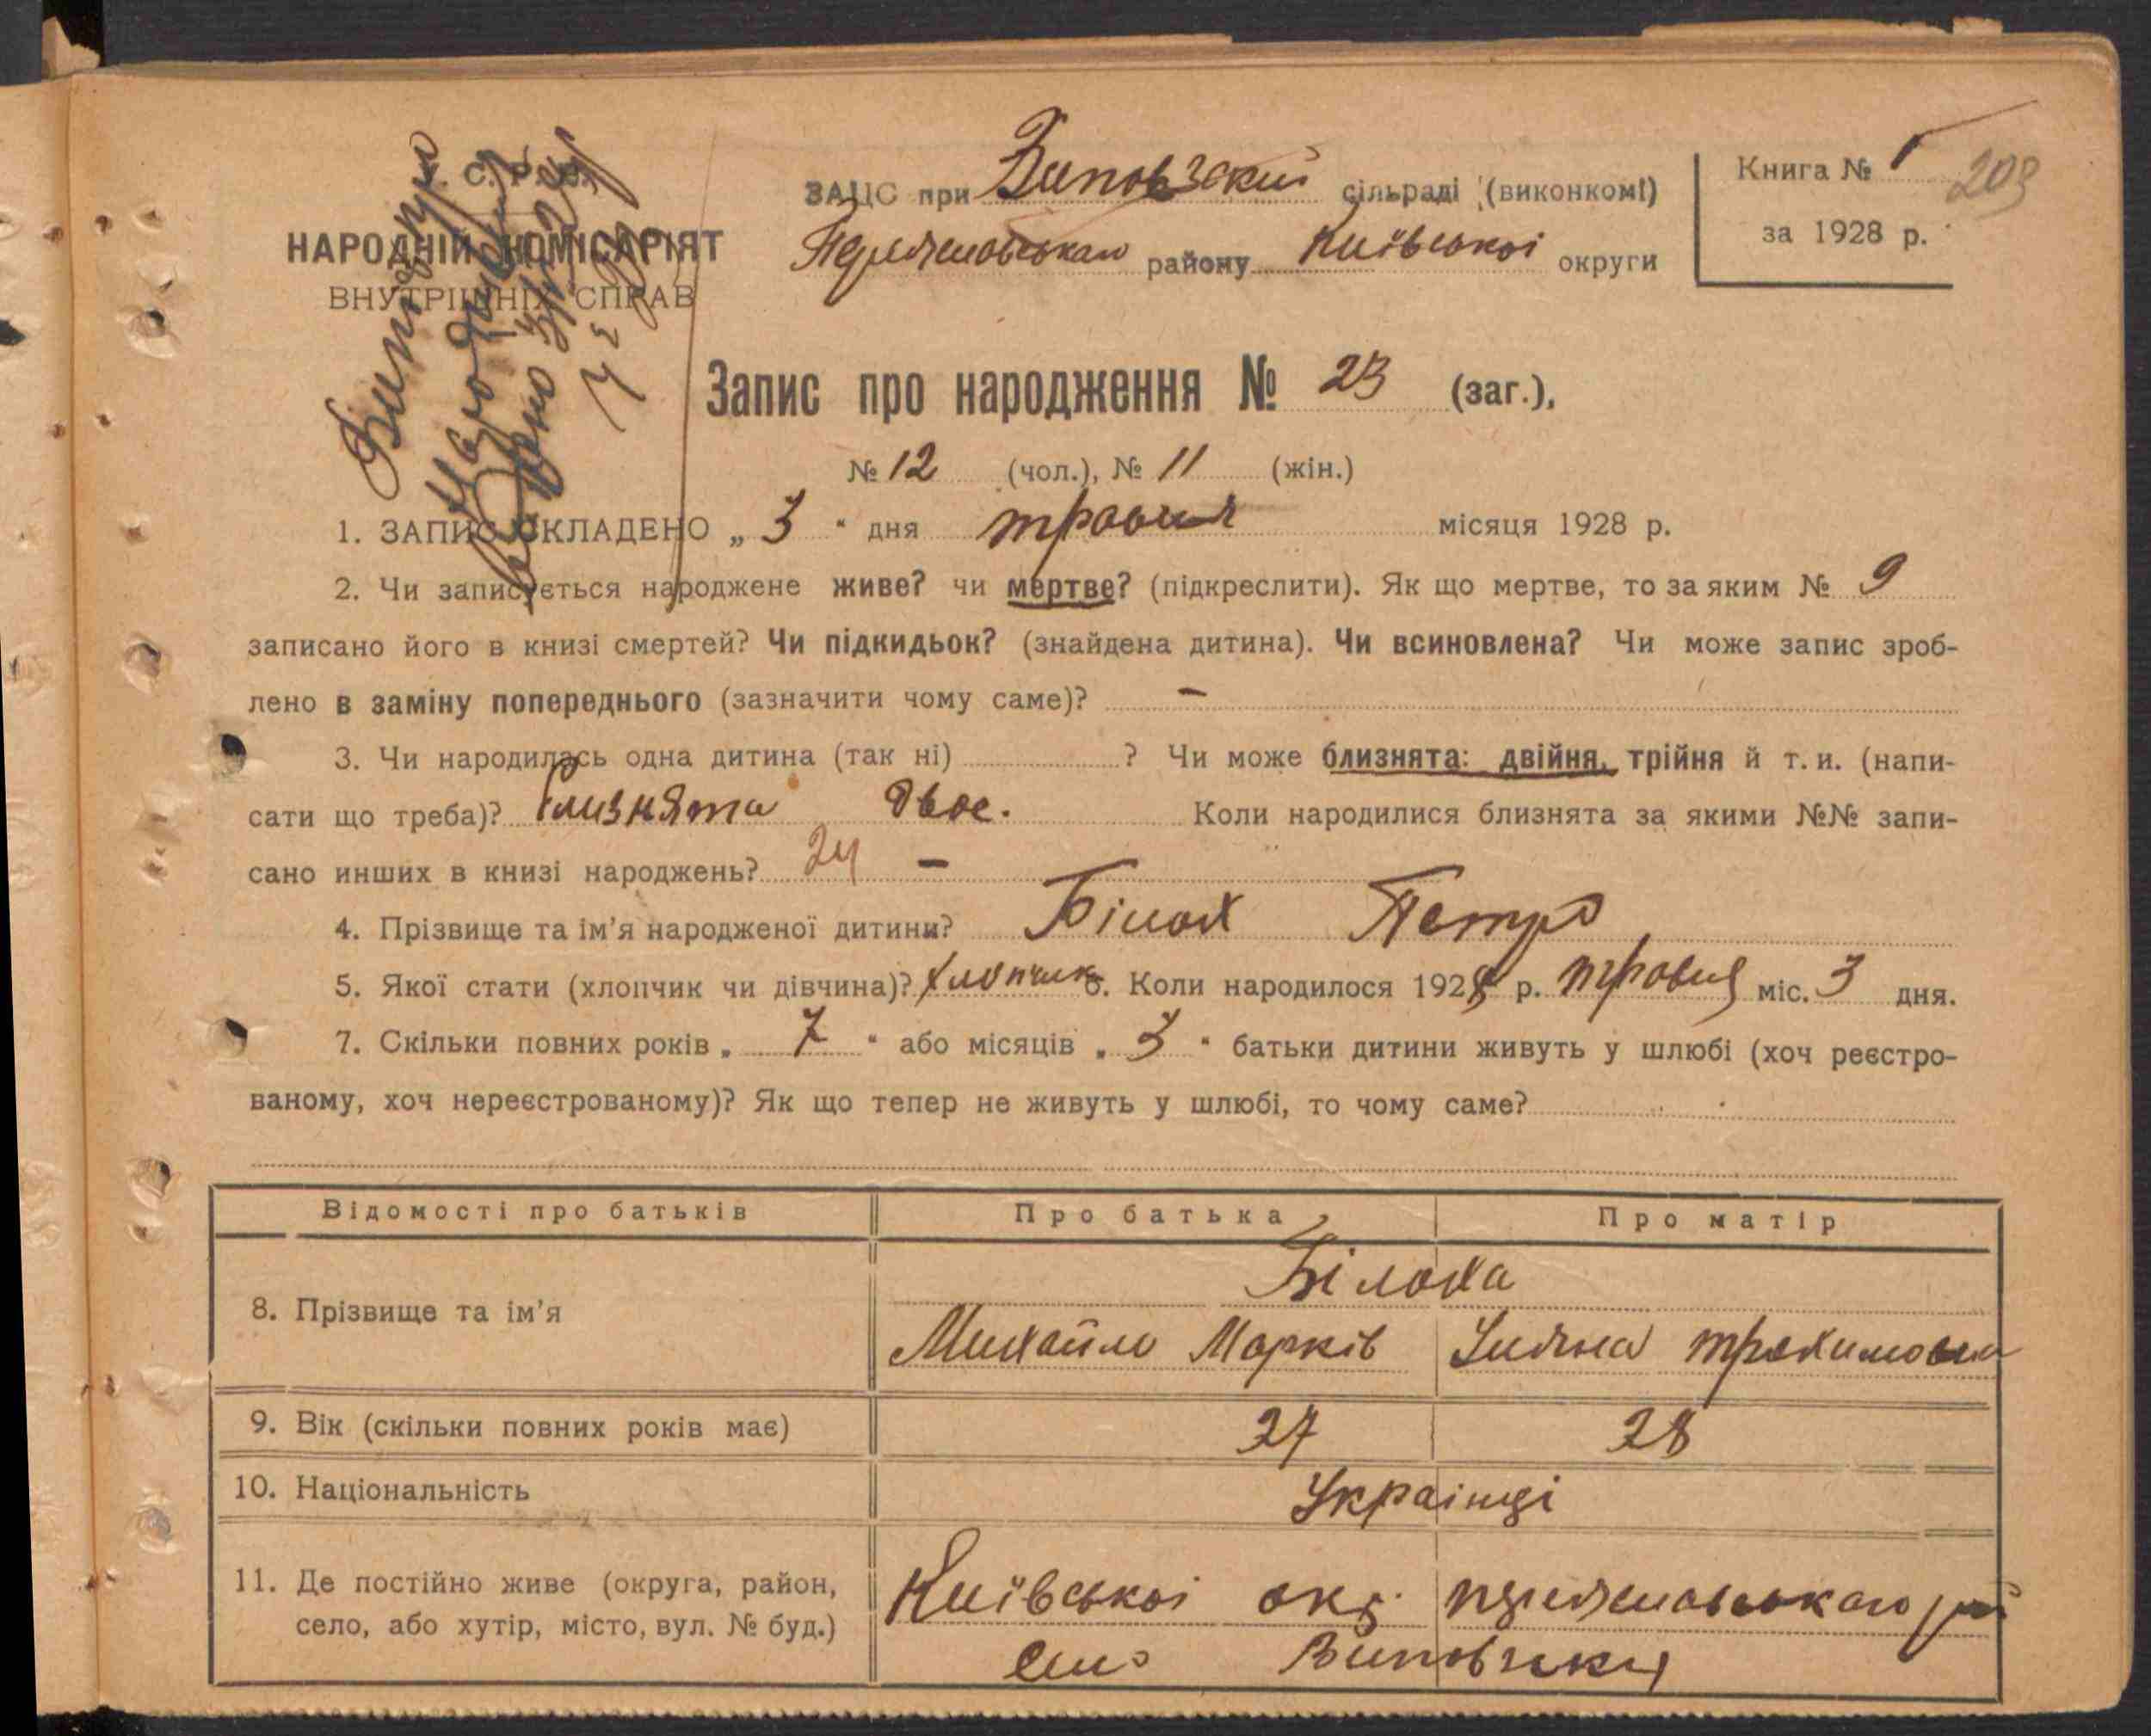 У. С. Р. Р.
НАРОДНІЙ КОМІСАРІЯТ
ВНУТРІШНІХ СПРАВ
ЗАЦС при Виповзский сільраді (виконкомі)
району Київської округи
Книга № 1 203
за 1928 р.
Запис про народження № 23 (заг.),
№ 12 (чол.), № 11 (жін.)
1. ЗАПИС СКЛАДЕНО „ 3 “ дня травня місяця 1928 р.
2. Чи записується народжене живе? чи мертве? (підкреслити). Як що мертве, то за яким № 9
записано його в книзі смертей? Чи підкидьок? (знайдена дитина). Чи всиновлена? Чи може запис зроб-
лено в заміну попереднього (зазначити чому саме)? –
3. Чи народилась одна дитина (так ні) ? Чи може близнята: двійня, трійня й т. и. (напи-
сати що треба)? близнята двое. Коли народилися близнята за якими №№ запи-
сано инших в книзі народжень? 24 –
4. Прізвище та ім’я народженої дитини? Білох Петро
5. Якої стати (хлопчик чи дівчина)? хлопчик 6. Коли народилося 1928 р. травня міс. 3 дня.
7. Скільки повних років „ 7 “ або місяців „ 3 “ батьки дитини живуть у шлюбі (хоч реєстро-
ваному, хоч нереєстрованому)? Як що тепер не живуть у шлюбі, то чому саме?
Відомості про батьків Про батька Про матір
8. Прізвище та ім’я Білоха
Михайло Марків Уляна
9. Вік (скільки повних років має) 27 28
10. Національність Українці
11. Де постійно живе (округа, район,
село, або хутір, місто, вул. № буд.)
Київської окр.
село Виповзки